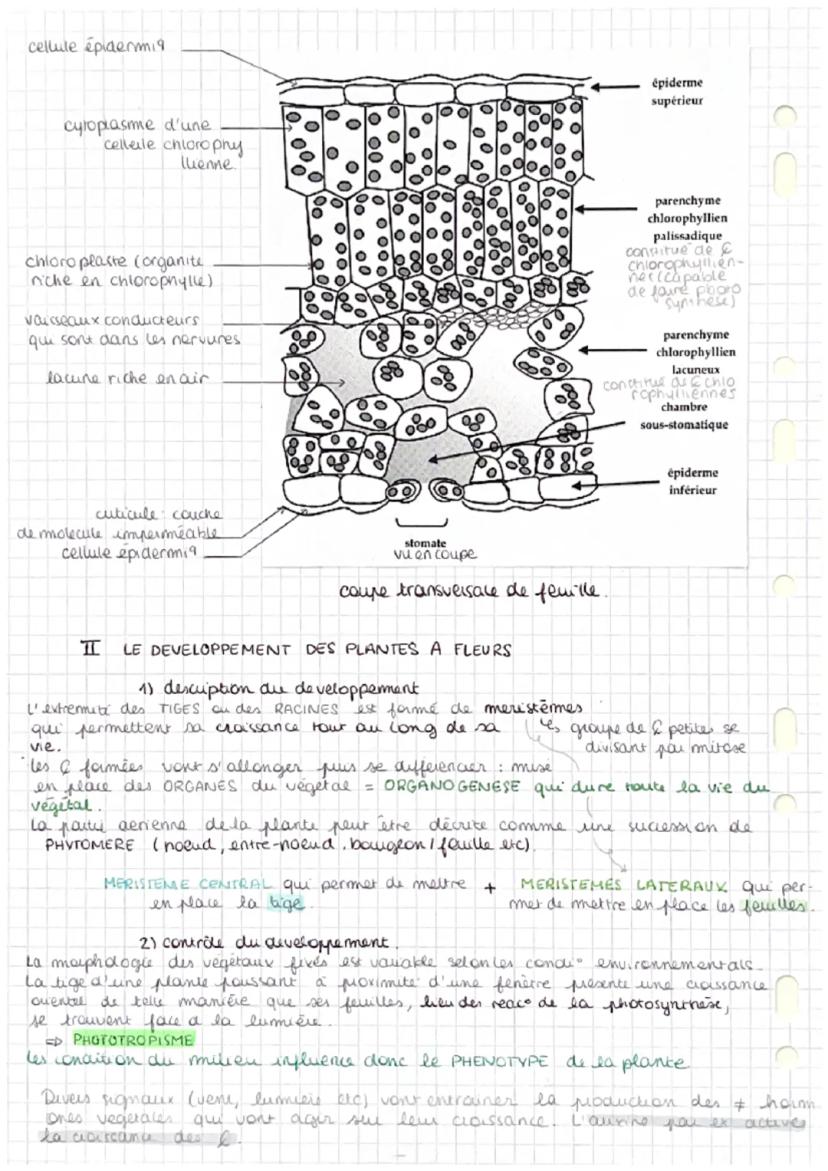 cellule épidermiq
épiderme
supérieur
cytoplasme d'une
cellule chlorophy
llienne.
parenchyme
chlorophyllien
palissadique
constitué de ₵
chlorophyllien-
nes (capable
de faire photo
synthèse)
chloroplaste (organite
riche en chlorophylle)
vaisseaux conducteurs
qui sont dans les nervures
parenchyme
chlorophyllien
lacuneux
constitué de ₵ chlo
rophylliennes
lacune riche en air
chambre
sous-stomatique
épiderme
inférieur
cuticule : couche
de molecule imperméable
cellule épidermiq
stomate
vu en coupe
coupe transversale de feuille.
II LE DEVELOPPEMENT DES PLANTES A FLEURS
1) description du developpement
L'extremité des TIGES ou des RACINES est formé de meristèmes
qui permettent sa croissance tout au long de sa
vie.
↳ groupe de ₵ petites se
divisant par mitose
les ₵ formées vont s'allonger puis se differencier : mise
en place des ORGANES du végétal = ORGANOGENESE qui dure toute la vie du
végétal.
La partie aerienne de la plante peut être décrite comme une sucession de
PHYTOMERE (noeud, entre-noeud, bourgeon / feuille etc).
MERISTEME CENTRAL qui permet de mettre
en place la tige.
+
MERISTEMES LATERAUX qui per-
met de mettre en place les feuilles.
2) contrôle du developpement.
La morphologie des végétaux fixés est variable selon les condi° environnementals.
La tige d'une plante poussant à proximité d'une fenêtre présente une croissance
orienté de telle manière que ses feuilles, lieu des reac° de la photosynthèse,
se trouvent face a la lumière.
⇨ PHOTOTROPISME
les condition du milieu influence donc le PHENOTYPE de la plante
Divers signaux (vent, lumière etc) vont entrainer la production des ≠ horm
ones vegetales qui vont agir sur leur croissance. L'auxine par ex active
la croissance des ₵.